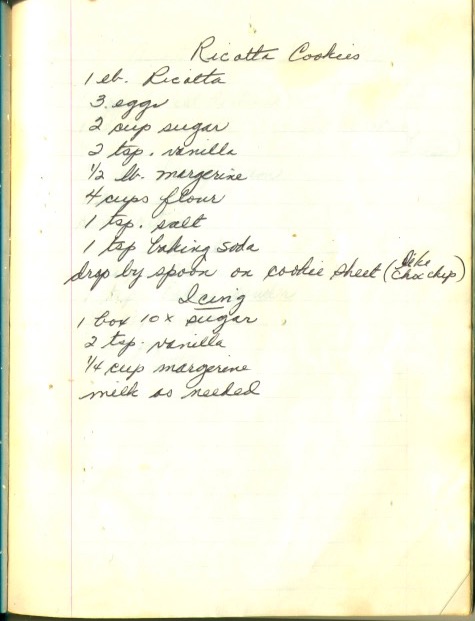 Ricotta Cookies
1 lb. Ricotta
3 eggs
2 cup sugar
2 tsp. vanilla
1/2 lb. margerine
4 cups flour
1 tsp. salt
1 tsp baking soda
drop by spoon on cookie sheet (like Choc chip)
Icing
1 box 10x sugar
2 tsp. vanilla
1/4 cup margerine
milk as needed